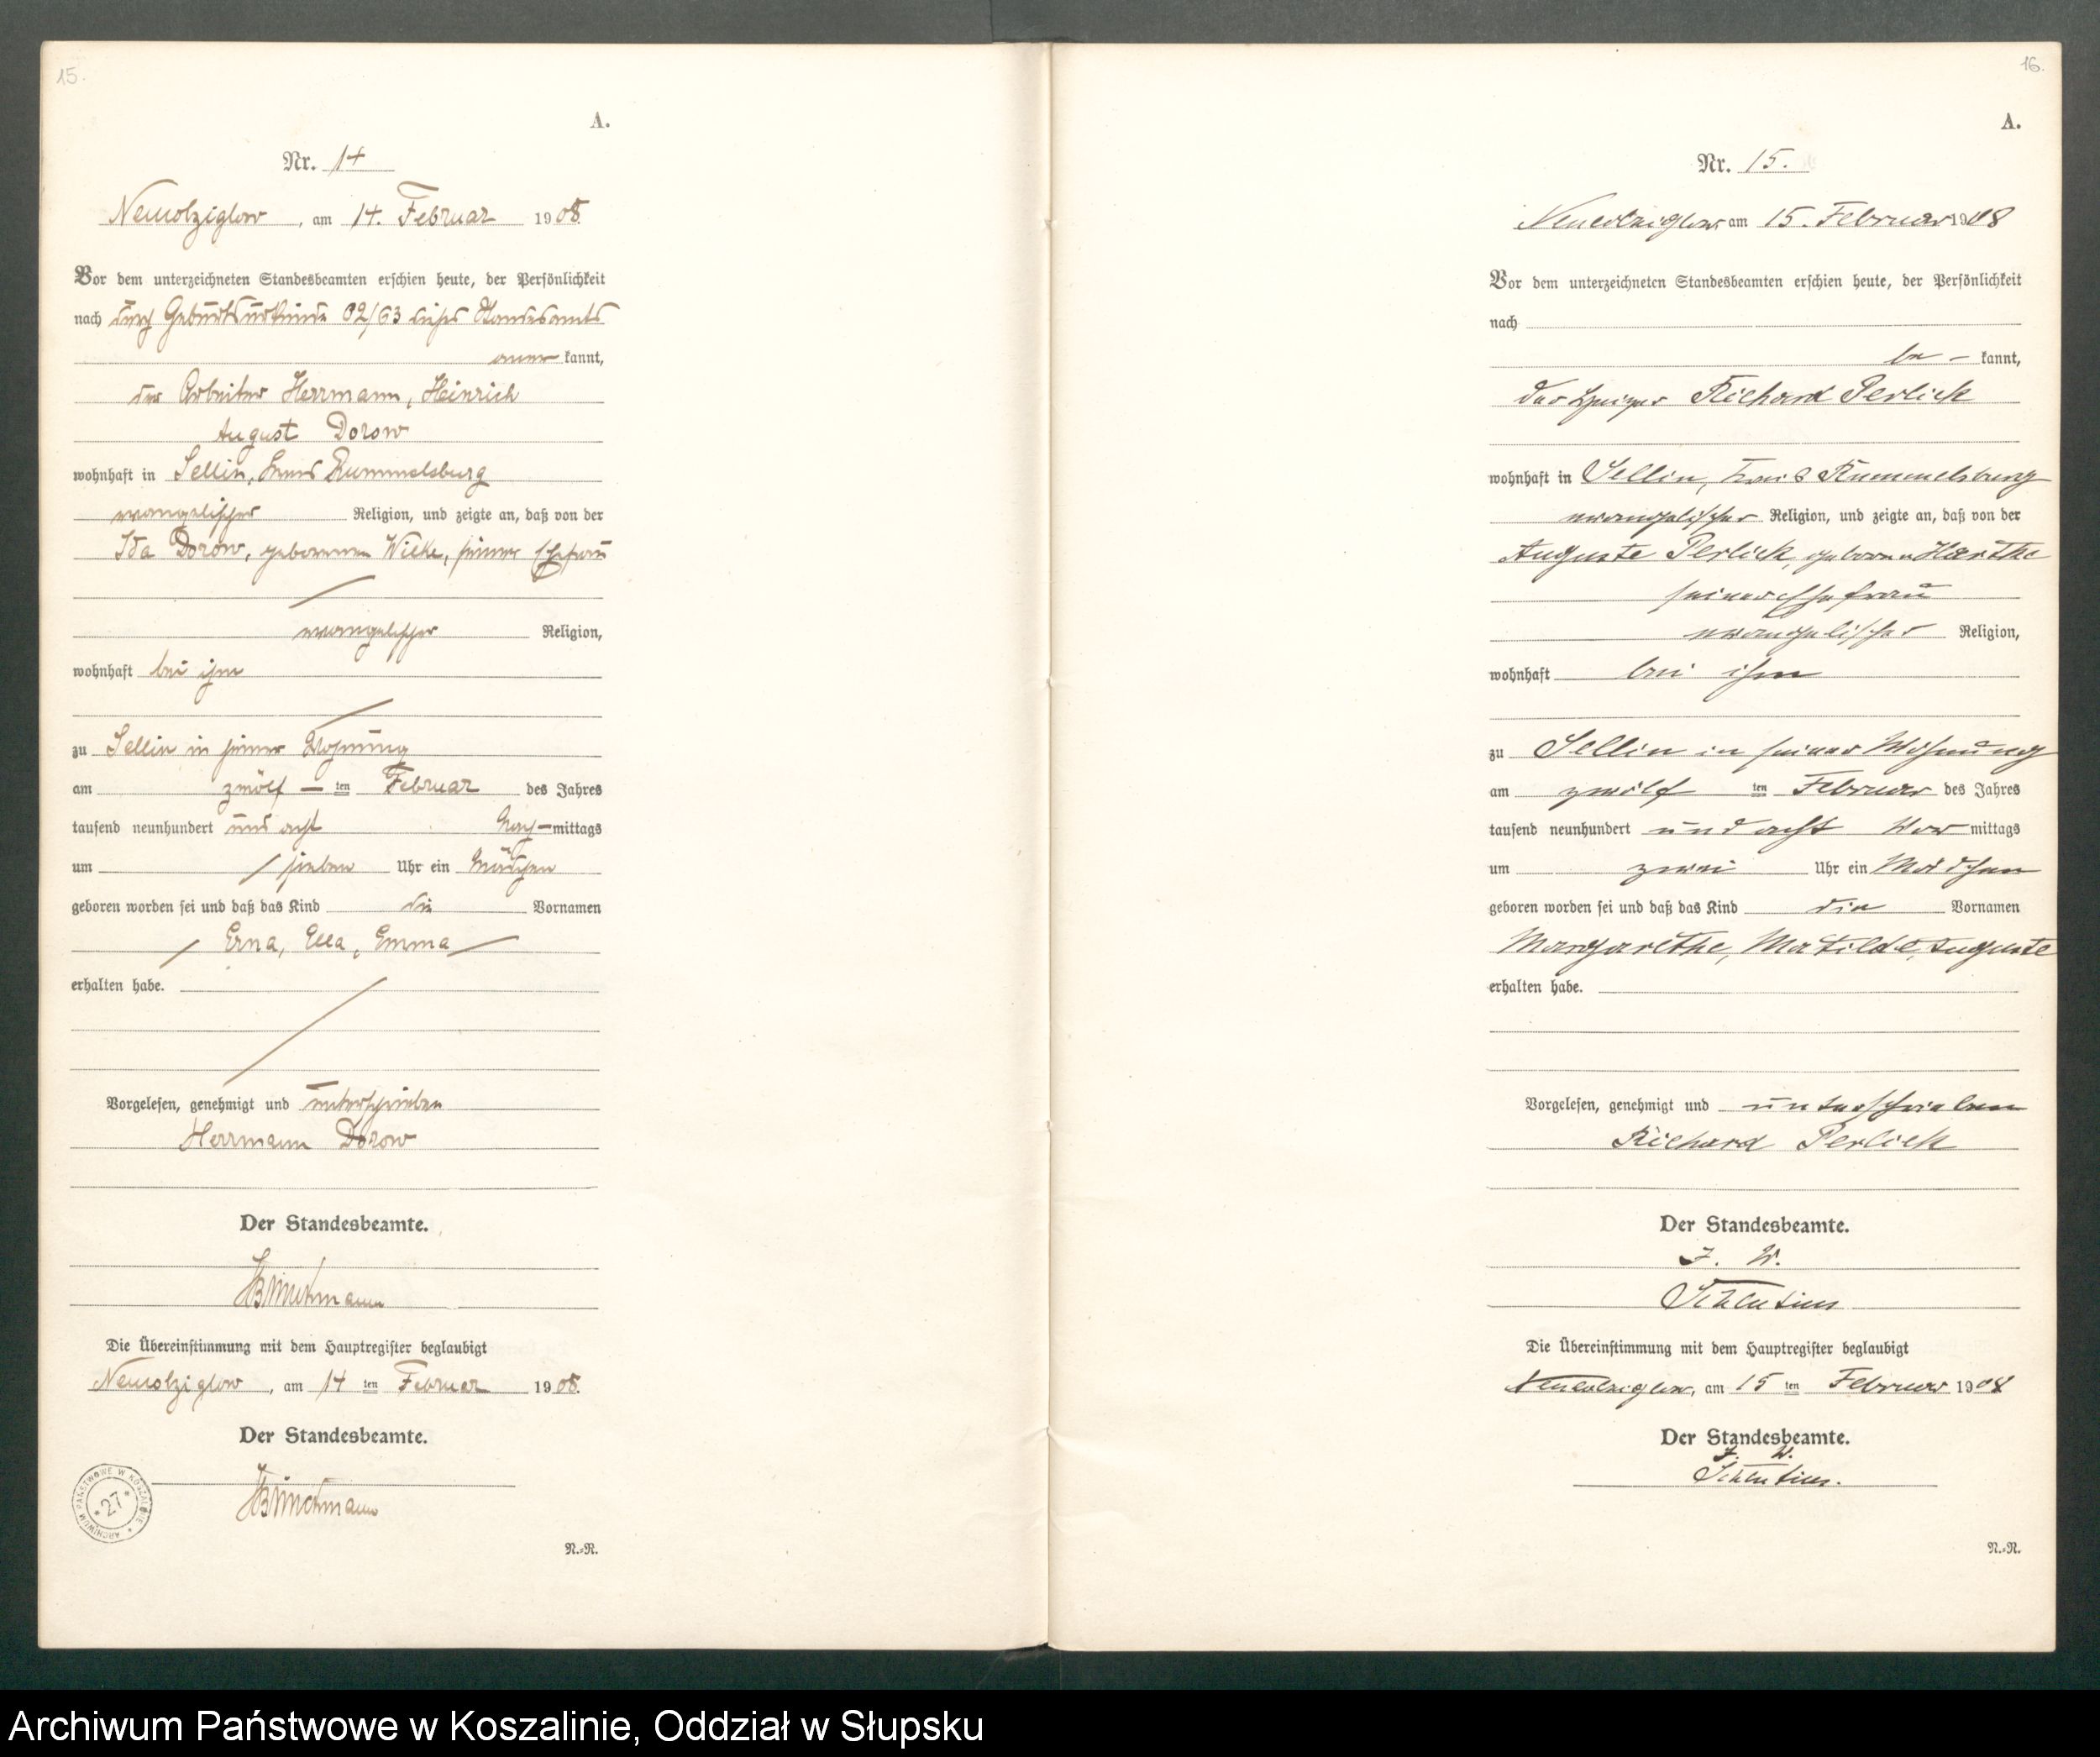 15.
A.
Nr. 14
Neuwolziglow, am 14. Februar 1908.
Vor dem unterzeichneten Standesbeamten erschien heute, der Persönlichkeit
nach durch Geburtsurkunde 02/63 dieses Standesamts
aner kannt,
der Arbeiter Herrmann, Heinrich
August Dorow
wohnhaft in Sellin, Kreis Rummelsburg
evangelischer Religion, und zeigte an, daß von der
Ida Dorow, geborenen Wilke, seiner Ehefrau
evangelischer Religion,
wohnhaft bei ihm
zu Sellin in seiner Wohnung
am zwölf ten Februar des Jahres
tausend neunhundert und acht Nach-mittags
um sieben Uhr ein Mädchen
geboren worden sei und daß das Kind die Vornamen
Erna, Ella, Emma
erhalten habe.
Vorgelesen, genehmigt und unterschrieben
Herrmann Dorow
Der Standesbeamte.
Die Übereinstimmung mit dem Hauptregister beglaubigt
Neuwolziglow, am 14 ten Februar 1908.
Der Standesbeamte.
ARCHIWUM PAŃSTWOWE W KOSZALINIE * 27 *
N.-R.
16.
A.
Nr. 15.
Neuwolziglow am 15. Februar 1908
Vor dem unterzeichneten Standesbeamten erschien heute, der Persönlichkeit
nach
be - kannt,
der Richard Perlick
wohnhaft in Sellin, Kreis Rummelsburg
evangelischer Religion, und zeigte an, daß von der
Auguste Perlick, geborene Harthe
seiner Ehefrau
evangelischer Religion,
wohnhaft bei ihm
zu Sellin in seiner Wohnung
am zwölf ten Februar des Jahres
tausend neunhundert und acht Vor mittags
um zwei Uhr ein Mädchen
geboren worden sei und daß das Kind die Vornamen
Margarethe, Matilde, Auguste
erhalten habe.
Vorgelesen, genehmigt und unterschrieben
Richard Perlick
Der Standesbeamte.
J. W.
Die Übereinstimmung mit dem Hauptregister beglaubigt
Neuwolziglow, am 15 ten Februar 1908
Der Standesbeamte.
J. W.
N.-R.
Archiwum Państwowe w Koszalinie, Oddział w Słupsku